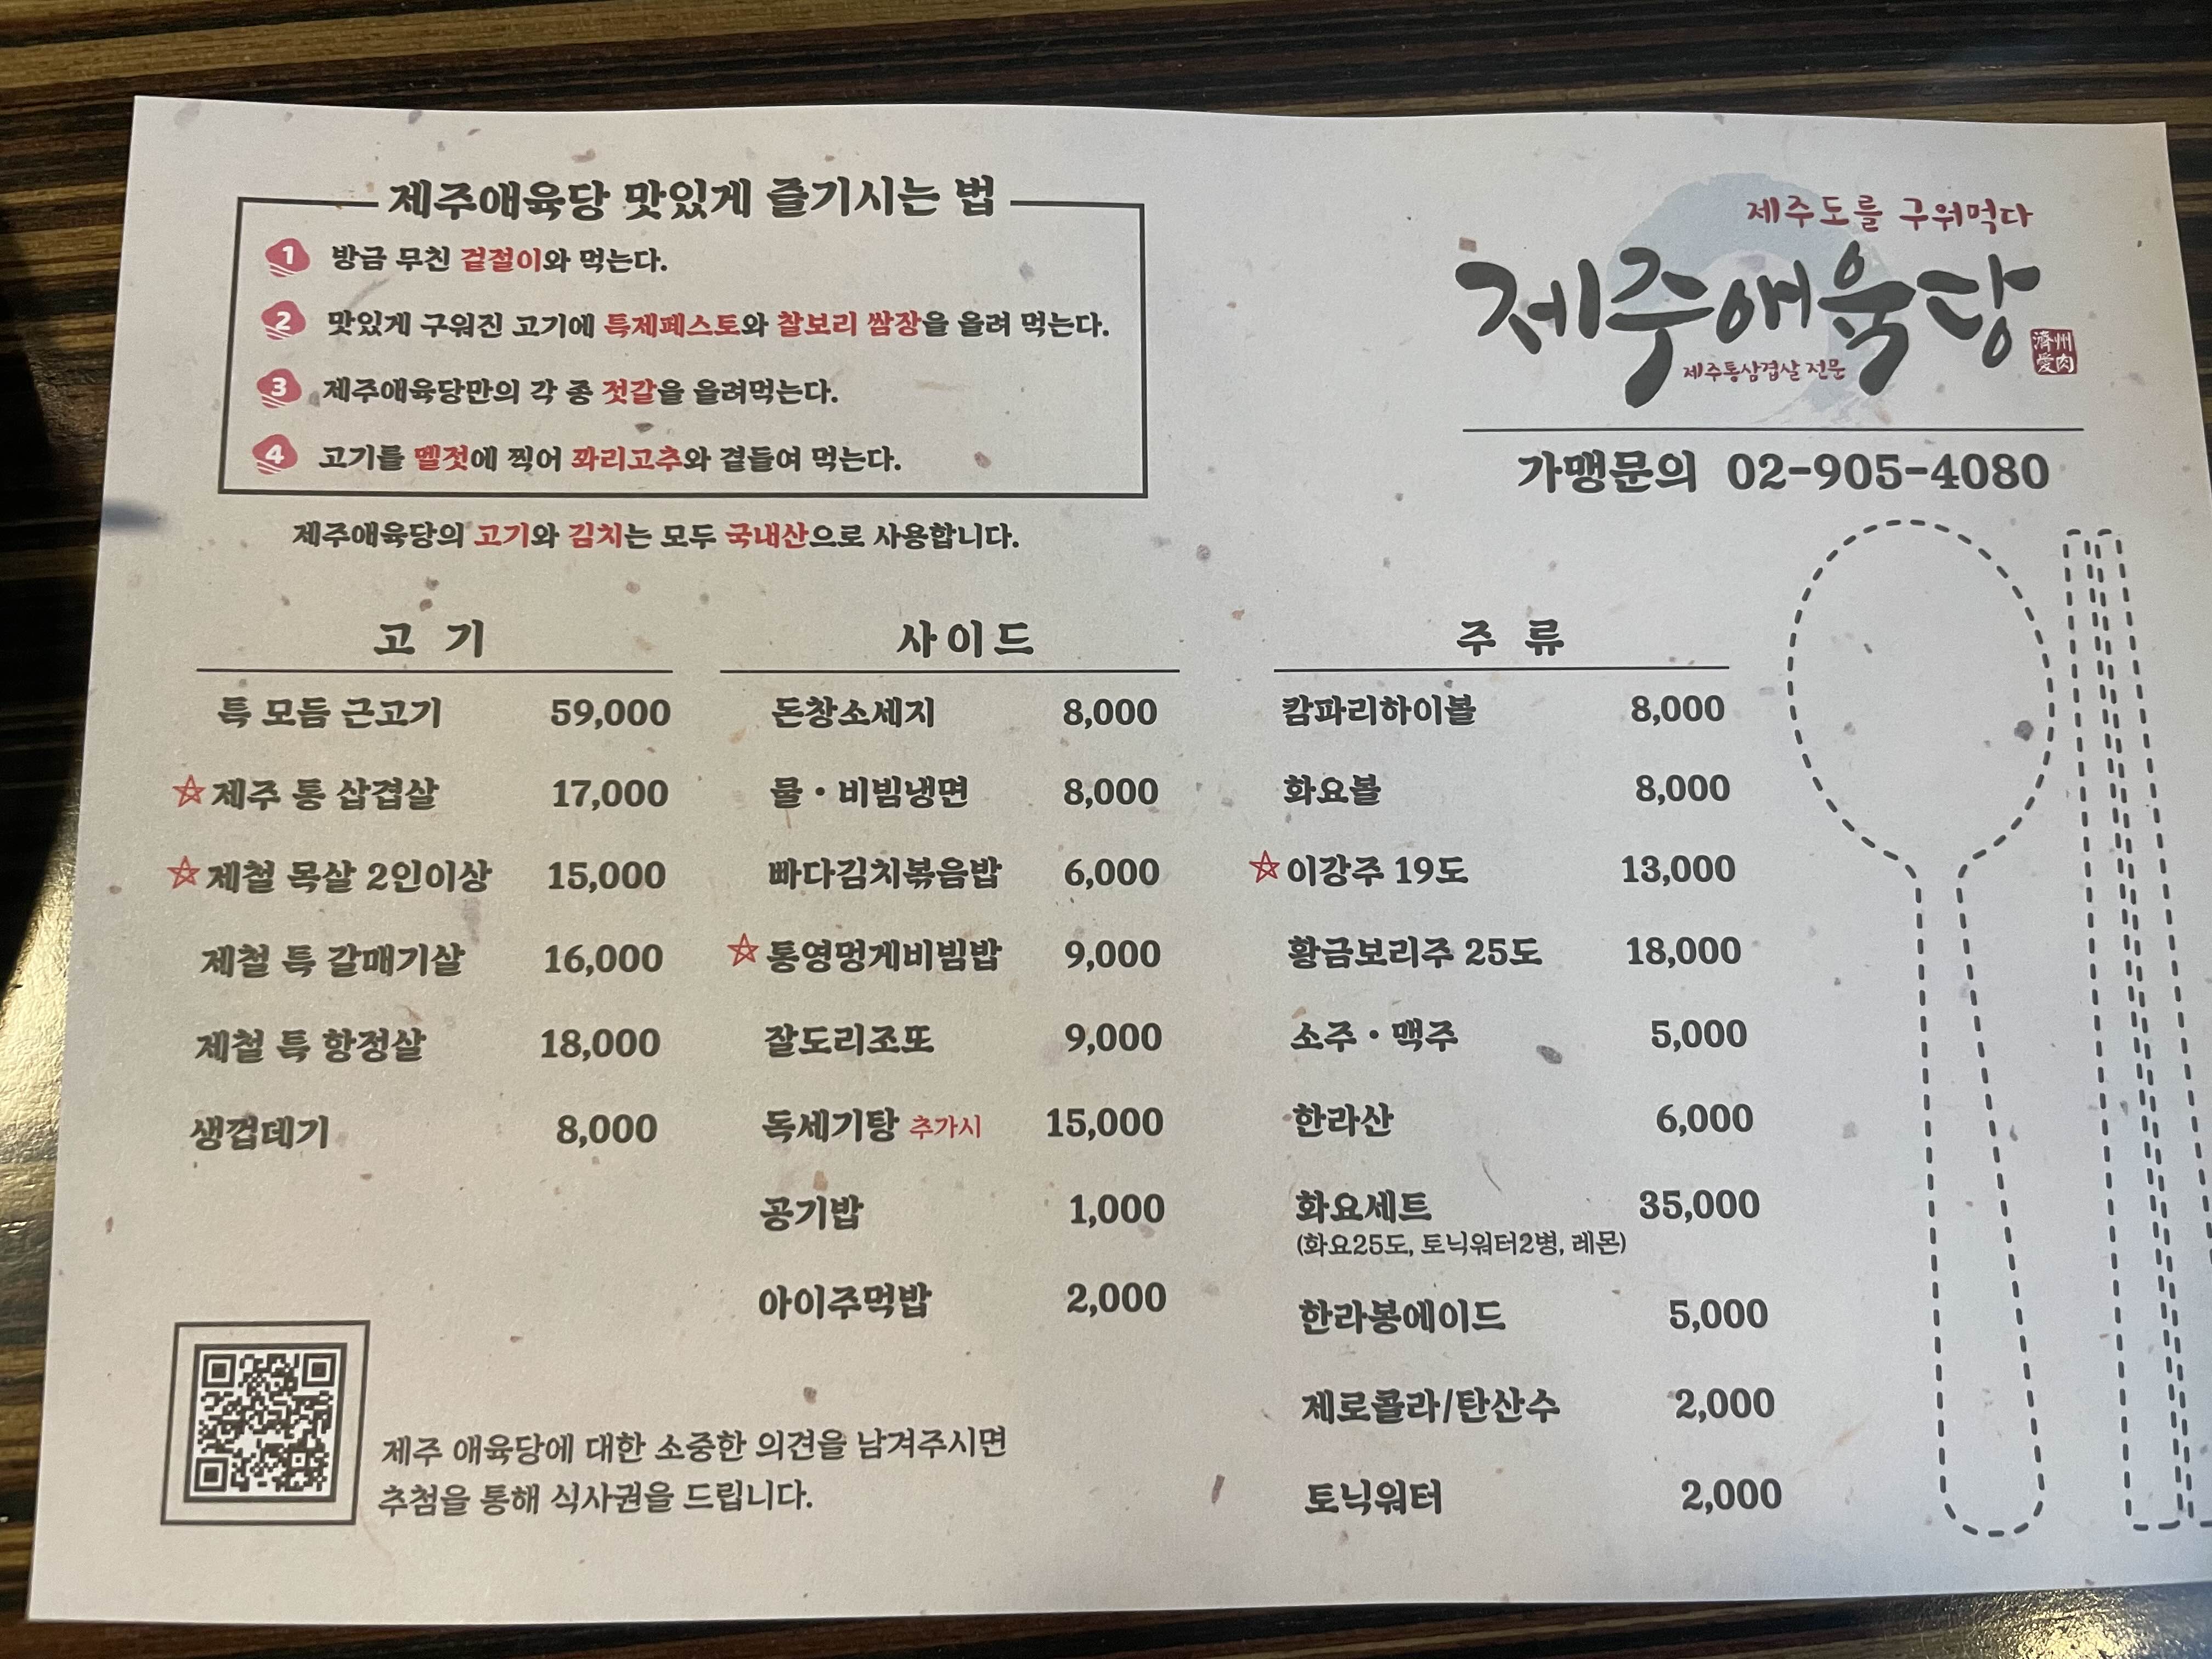 제주애육당 맛있게 즐기시는 법
1 방금 무친 겉절이와 먹는다.
2 맛있게 구워진 고기에 특제페스토와 찰보리 쌈장을 올려 먹는다.
3 제주애육당만의 각 종 젓갈을 올려먹는다.
4 고기를 멜젓에 찍어 꽈리고추와 곁들여 먹는다.
제주애육당의 고기와 김치는 모두 국내산으로 사용합니다.
제주도를 구워먹다
제주애육당
제주통삼겹살 전문
濟州
愛肉
가맹문의 02-905-4080
고 기
특 모듬 근고기 59,000
☆제주 통 삼겹살 17,000
☆제철 목살 2인이상 15,000
제철 특 갈매기살 16,000
제철 특 항정살 18,000
생껍데기 8,000
사이드
돈창소세지 8,000
물·비빔냉면 8,000
빠다김치볶음밥 6,000
☆통영멍게비빔밥 9,000
잘도리조또 9,000
독세기탕 추가시 15,000
공기밥 1,000
아이주먹밥 2,000
주 류
캄파리하이볼 8,000
화요볼 8,000
☆이강주 19도 13,000
황금보리주 25도 18,000
소주·맥주 5,000
한라산 6,000
화요세트 35,000
(화요25도, 토닉워터2병, 레몬)
한라봉에이드 5,000
제로콜라/탄산수 2,000
토닉워터 2,000
제주 애육당에 대한 소중한 의견을 남겨주시면
추첨을 통해 식사권을 드립니다.